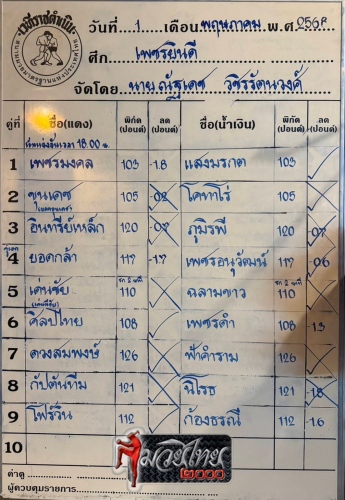 เวทีราชดำเนิน
วันที่ 1 เดือน พฤษภาคม พ.ศ. 2568
ศึก เพชรยินดี
จัดโดย นายณัฐเดช วชิรรัตนวงศ์
คู่ที่ ชื่อ(แดง) พิกัด (ปอนด์) ลด (ปอนด์) ชื่อ(น้ำเงิน) พิกัด (ปอนด์) ลด (ปอนด์)
เวลา 18.00 น.
1 เพชรมงคล 103 -1.8 แสงมรกต 103
2 ขุนเดช 105 โคทาโร่ 105
3 อินทรีย์เหล็ก 120 ภูมิรพี 120
4 ยอดกล้า 117 -1.7 เพชรอนุวัฒน์ 117 -0.6
5 เด่นชัย 110 ฉลามขาว 110
6 ศิลป์ไทย 108 เพชรดำ 108 -1.3
7 ดวงสมพงษ์ 126 ฟ้าคำราม 126
8 กัปตันทีม 121 นิโรธ 121 -1.8
9 โฟร์วีน 112 ก้องธรณี 112 -1.6
10
มวยไทย
๒๐๐๐
ค่าดู
ผู้ควบคุมรายการ